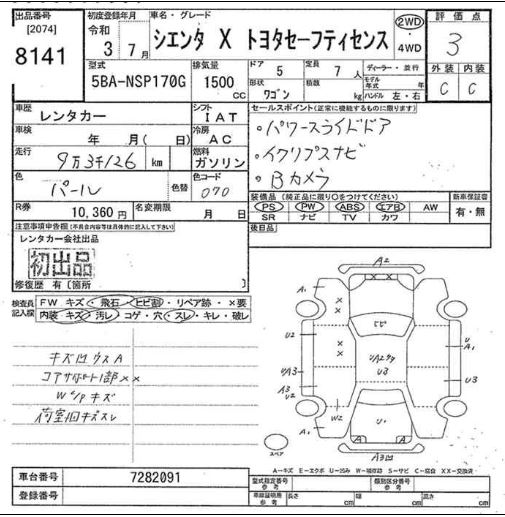 出品番号 初度登録年月 車名・グレード 評価点
[2074] 令和 シエンタ X トヨタセーフティセンス 2WD ・ 4WD 3
8141 3 7月
型式 排気量 ドア 5 定員 7 人 ディーラー・並行 外装 内装
5BA-NSP170G 1500 CC 形状 ワゴン 積載 kg モデル年式 年 ハンドル 左・右 C C
車歴 レンタカー シフト IAT セールスポイント(正常に機能するものに限ります)
車検 年 月( 日) 冷房 AC ・パワースライドドア
走行 9万3千126 km 燃料 ガソリン ・イクリプスナビ
色 パール 色替 色コード 070 ・Bカメラ
R券 10,360 円 名変期限 月 日
装備品 (純正品に限り○をつけてください) 新車保証書
PS PW ABS エアB AW 有・無
SR ナビ TV カワ
後日品
注意事項申告欄(不具合内容等は具体的に記入して下さい)
レンタカー会社出品
初出品
修復歴 有〔箇所
検査員記入欄 FW キズ・飛石・ヒビ割・リペア跡・×要
内装・キズ・汚レ・コゲ・穴・スレ・キレ・破レ
キズ凹ウスA
コアサポート1部××
W/Pキズ
荷室内キズスレ
A2
A1
U2
A1
U/A3
A3
U2
U3
U3
W2
U1
A3凹
スペア
A-キズ E-エクボ U-凹ミ W-補修跡 S-サビ C-腐食 XX-交換済
車台番号 7282091 型式指定番号 参考 類別区分番号 参考
登録番号 車庫証明用 参考 長さ cm 幅 cm 高さ cm